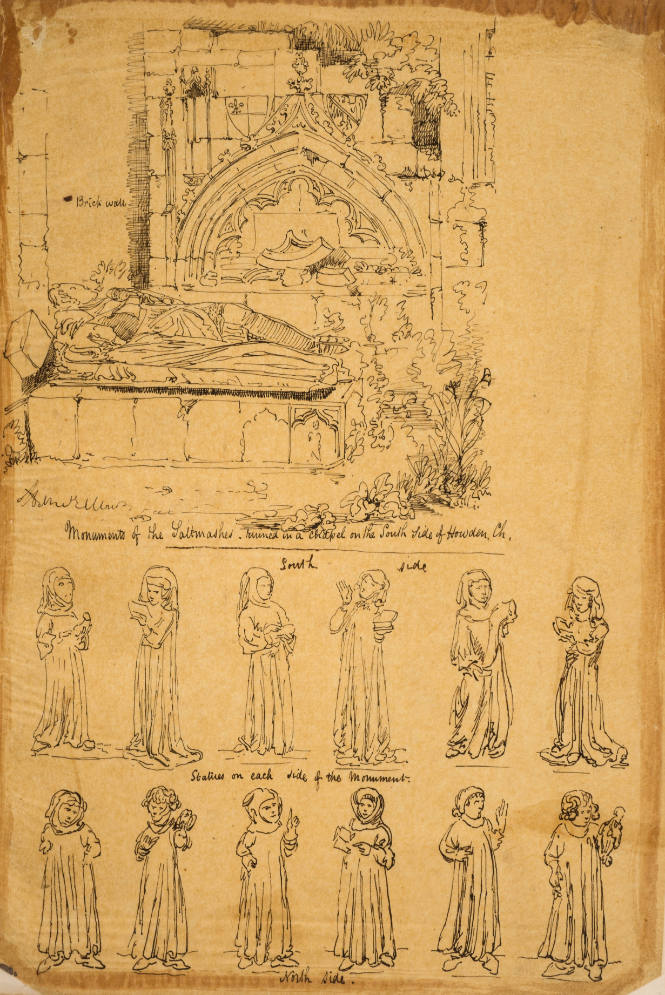 Brick wall
Monuments of the Saltmashes. ruined in a chapel on the South side of Howden Ch.
South side
Statues on each side of the Monument.
North side.